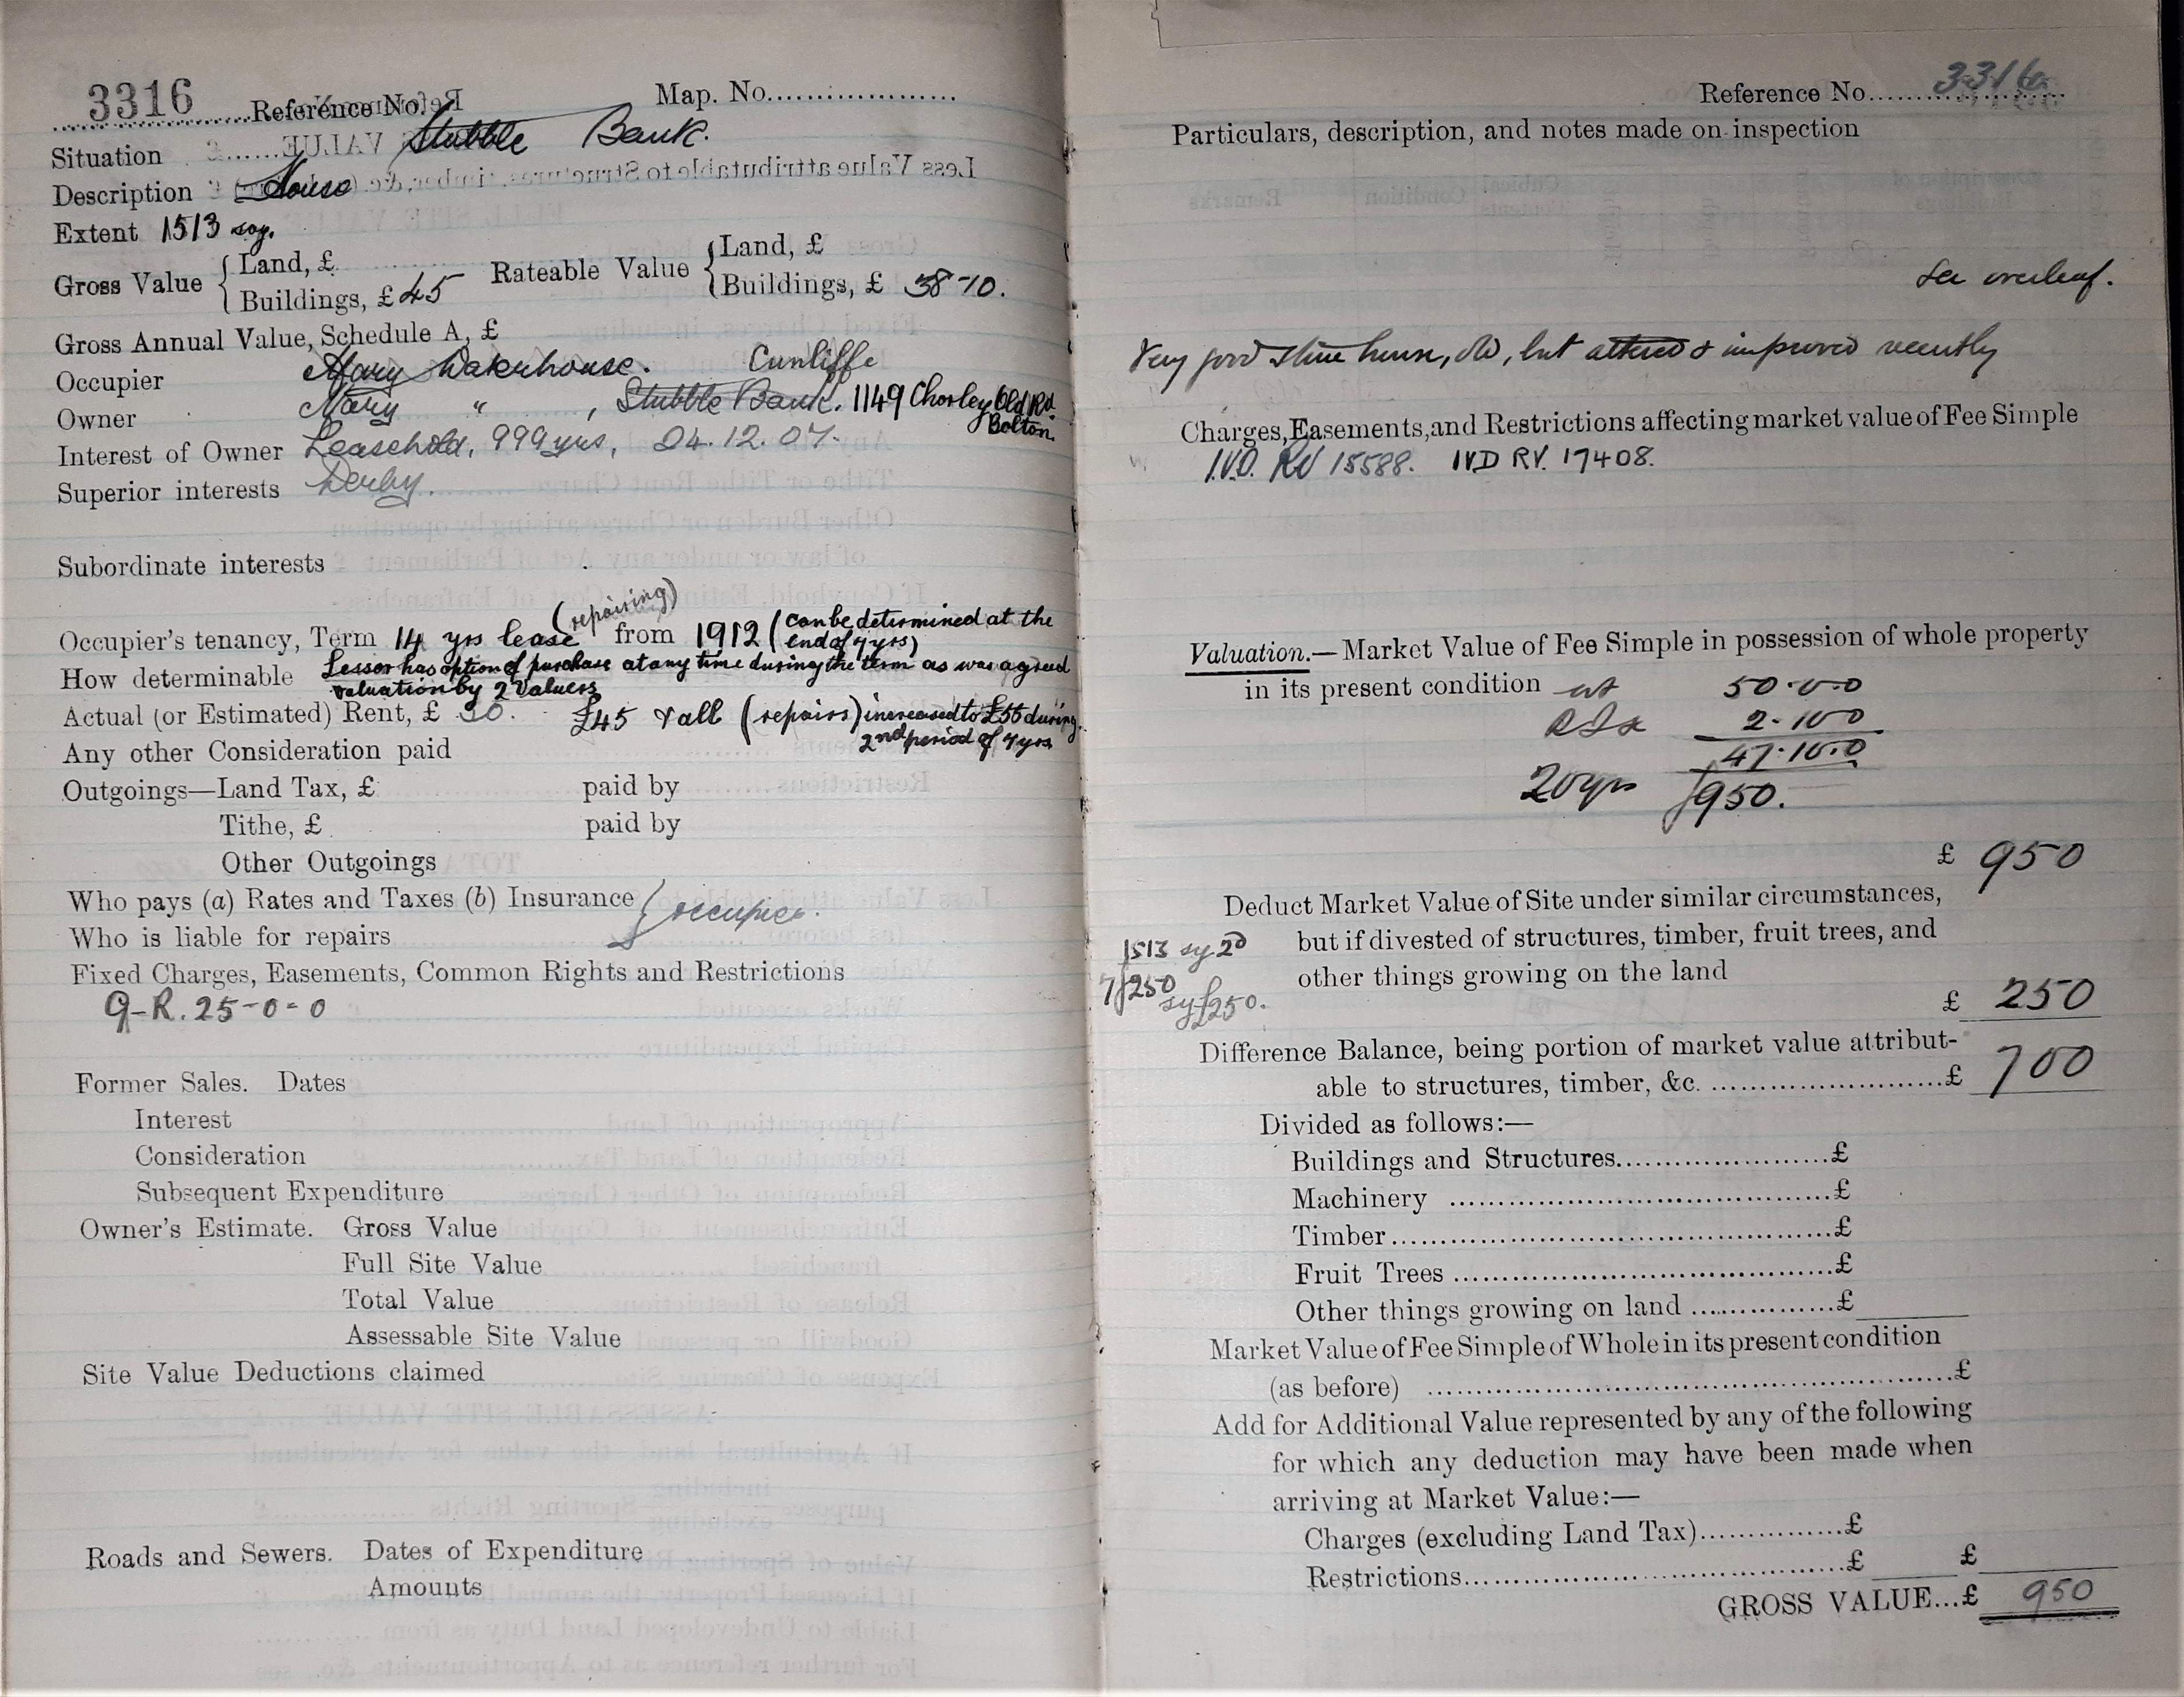 3316 Reference No. Map. No.
Situation Stubble Bank.
Description House
Extent 1513 syg.
Gross Value { Land, £
Buildings, £ 45
Rateable Value { Land, £
Buildings, £ 38-10.
Gross Annual Value, Schedule A, £
Occupier Mary Wakerhouse. Cunliffe
Owner Mary " , Stubble Bank. 1149 Chorley Old Rd.
Bolton.
Interest of Owner Leasehold, 999 yrs, 24.12.07.
Superior interests Derby.
Subordinate interests
(repairing)
Occupier's tenancy, Term 14 yrs lease from 1912 (can be determined at the
end of 7 yrs)
How determinable Lessor has option of purchase at any time during the term as was agreed
valuation by 2 Valuers
Actual (or Estimated) Rent, £ 30. £45 & all (repairs) increased to £55 during
2nd period of 7 yrs
Any other Consideration paid
Outgoings—Land Tax, £ paid by
Tithe, £ paid by
Other Outgoings
Who pays (a) Rates and Taxes (b) Insurance } occupier.
Who is liable for repairs
Fixed Charges, Easements, Common Rights and Restrictions
G-R. 25-0-0
Former Sales. Dates
Interest
Consideration
Subsequent Expenditure
Owner's Estimate. Gross Value
Full Site Value
Total Value
Assessable Site Value
Site Value Deductions claimed
Roads and Sewers. Dates of Expenditure
Amounts
Reference No. 3316
Particulars, description, and notes made on inspection
See overleaf.
Very good stone house, old, but altered & improved recently
Charges, Easements, and Restrictions affecting market value of Fee Simple
I.V.D. RV 15588. IVD RV. 17408.
Valuation.—Market Value of Fee Simple in possession of whole property
in its present condition at 50.0.0
2.10.0
47.10.0
20 yrs £950.
£ 950
Deduct Market Value of Site under similar circumstances,
but if divested of structures, timber, fruit trees, and
other things growing on the land
1513 sy
£250.
£ 250
Difference Balance, being portion of market value attribut-
able to structures, timber, &c. £ 700
Divided as follows:—
Buildings and Structures £
Machinery £
Timber £
Fruit Trees £
Other things growing on land £
Market Value of Fee Simple of Whole in its present condition
(as before) £
Add for Additional Value represented by any of the following
for which any deduction may have been made when
arriving at Market Value:—
Charges (excluding Land Tax) £
Restrictions £ £
GROSS VALUE...£ 950